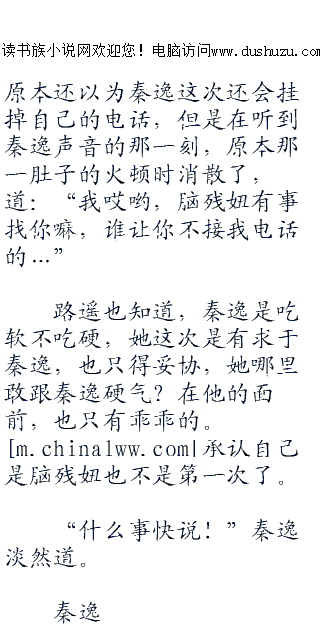 读书族小说网欢迎您！电脑访问www.dushuzu.com
原本还以为秦逸这次还会挂
掉自己的电话，但是在听到
秦逸声音的那一刻，原本那
一肚子的火顿时消散了，
道：“我哎哟，脑残妞有事
找你嘛，谁让你不接我电话
的…”
路遥也知道，秦逸是吃
软不吃硬，她这次是有求于
秦逸，也只得妥协，她哪里
敢跟秦逸硬气？在他的面
前，也只有乖乖的。
[m.chinalww.com|承认自己
是脑残妞也不是第一次了。
“什么事快说！”秦逸
淡然道。
秦逸